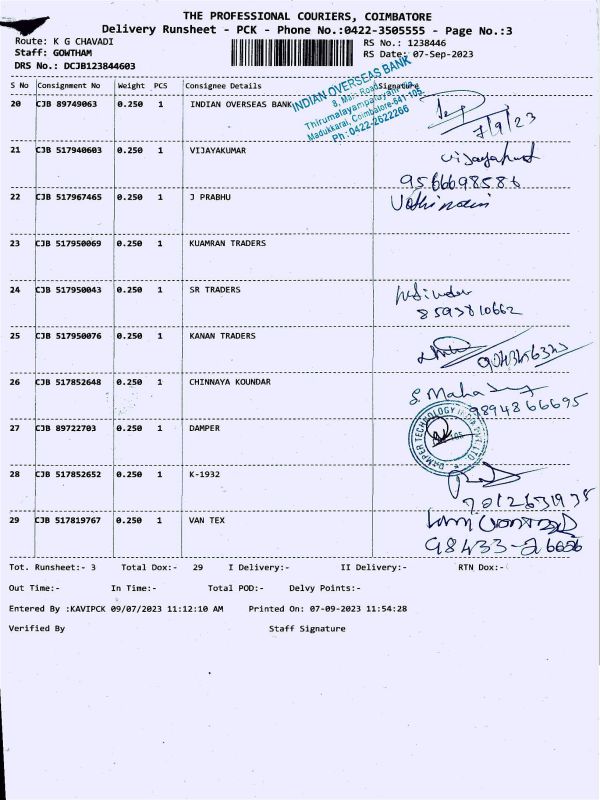 THE PROFESSIONAL COURIERS, COIMBATORE
Delivery Runsheet - PCK - Phone No.:0422-3505555 - Page No.:3
Route: K G CHAVADI RS No.: 1238446
Staff: GOWTHAM RS Date: 07-Sep-2023
DRS No.: DCJB123844603
S No Consignment No Weight PCS Consignee Details Signature
INDIAN OVERSEAS BANK
8, Main Road,
Thirumalayampalayam
Madukkarai, Coimbatore-641 105.
Ph: 0422-2622266
20 CJB 89749063 0.250 1 INDIAN OVERSEAS BANK
7/9/23
21 CJB 517940603 0.250 1 VIJAYAKUMAR
9566698586
22 CJB 517967465 0.250 1 J PRABHU
23 CJB 517950069 0.250 1 KUAMRAN TRADERS
24 CJB 517950043 0.250 1 SR TRADERS
8593810662
25 CJB 517950076 0.250 1 KANAN TRADERS
26 CJB 517852648 0.250 1 CHINNAYA KOUNDAR
9894866695
27 CJB 89722703 0.250 1 DAMPER
DAMPER TECHNOLOGY INDIA PVT. LTD.
28 CJB 517852652 0.250 1 K-1932
29 CJB 517819767 0.250 1 VAN TEX
98433-26656
Tot. Runsheet:- 3 Total Dox:- 29 I Delivery:- II Delivery:- RTN Dox:-
Out Time:- In Time:- Total POD:- Delvy Points:-
Entered By :KAVIPCK 09/07/2023 11:12:10 AM Printed On: 07-09-2023 11:54:28
Verified By Staff Signature